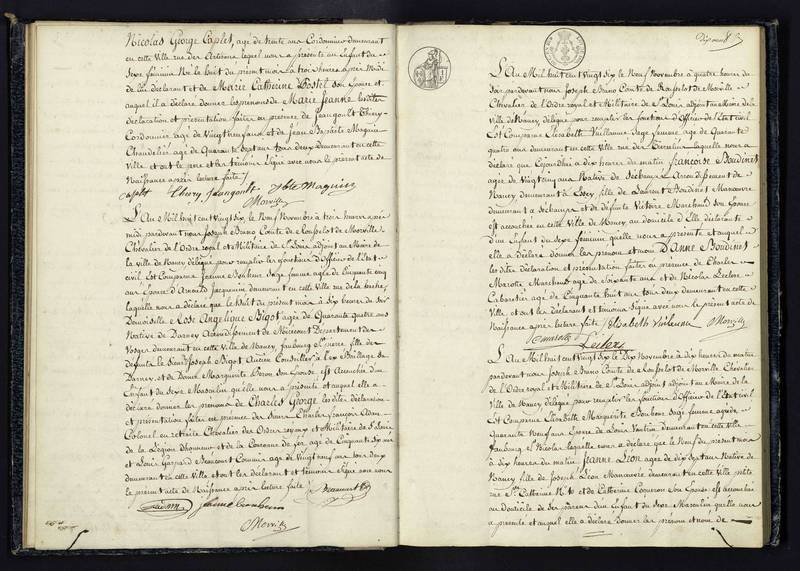 Nicolas George Caplet, agé de trente ans Cordonnier demeurant
en cette Ville rue des Artisans lequel nous a présenté un Enfant du
Sexe féminin Né le huit du présent mois à trois heures après Midi
de lui déclarant et de Marie Catherine Postel son Epouse et
auquel il a déclaré donner les prénoms de Marie Jeanne. Lesdites
déclaration et présentation faites en présence de Jeangoult Thiery
Cordonnier agé de Vingt neuf ans et de Jean Baptiste Maguin
Chandelier agé de Quarante Sept ans tous deux demeurant en cette
Ville et ont le pere et les témoins Signé avec nous le présent acte de
Naissance après lecture faite
Caplet Thiery Jeangoult Jbte Maguin
Morville
L'An Mil huit cent Vingt six le Neuf Novembre à trois heures après
midi pardevant nous Joseph Bruno Comte de Morville
Chevalier de l'Ordre royal et Militaire de St Louis adjoint au Maire de
la Ville de Nancy délégué pour remplir les fonctions d'Officier de l'Etat
civil Est Comparue Jeanne Bonheur Sage femme agée de Cinquante cinq
ans Epouse d'Arnould Jacquemin demeurant en cette Ville rue de la
laquelle nous a déclaré que le huit du présent mois à Dix heures du Soir
Demoiselle Rose Angelique Bigot agée de Quarante quatre ans
Native de Darney Arrondissement de Mirecourt Département des
Vosges demeurant en cette Ville de Nancy, faubourg St pierre fille de
défunts le Sieur Joseph Bigot Ancien Conseiller à le Baillage de
Darney, et de Dame Marguerite son Epouse est Accouchée d'un
Enfant du Sexe Masculin qu'elle nous a présenté et auquel elle a
déclaré donner les prénoms de Charles George. Lesdites déclaration
et présentation faites en présence des Sieurs Charles François
Colonel en retraite Chevalier des Ordres royaux et Militaire de St Louis
de la Légion d'honneur et de la Couronne de fer agé de Cinquante Six ans
et Louis Gaspard Beaucourt Commis agé de Vingt neuf ans tous deux
demeurant en cette Ville et ont les déclarant et témoins Signé avec nous
le présent acte de Naissance après lecture faite
Morville
Dix neuf
L'An Mil huit cent Vingt six le Neuf Novembre à quatre heures du
Soir pardevant nous Joseph Bruno Comte de Morville
Chevalier de l'Ordre royal et Militaire de St Louis adjoint au Maire de la
Ville de Nancy délégué pour remplir les fonctions d'Officier de l'Etat civil
Est Comparue Elisabeth Vuillaume Sage femme agée de Quarante
quatre ans demeurant en cette Ville rue de laquelle nous a
déclaré que Cejourd'hui à dix heures du matin françoise Boudinet
agée de Vingt cinq ans Native de Séchamps Arrondissement de
Nancy demeurant à Essey, fille de Laurent Boudinet Manœuvre
demeurant à Séchamps et de défunte Victoire Marchand son Epouse
est accouchée en cette Ville de Nancy, au domicile d'Elle déclarante
d'un Enfant du Sexe féminin qu'elle nous a présenté et auquel
elle a déclaré donner les prénom et nom d'Anne Boudinet
Lesdites déclaration et présentation faites en présence de Charles
Marotte Marchand agé de Soixante ans et de Nicolas Leclere
Cabaretier agé de Cinquante huit ans tous deux demeurant en cette
Ville et ont les déclarant et témoins Signé avec nous le présent acte de
Naissance après lecture faite Elisabeth Morville
Cmarotte Leclere
L'An Mil huit cent Vingt Six le Dix Novembre à dix heures du matin
pardevant nous Joseph Bruno Comte de Morville Chevalier
de l'Ordre royal et Militaire de St Louis adjoint au Maire de la
Ville de Nancy, délégué pour remplir les fonctions d'Officier de l'Etat civil
Est Comparue Elisabette Marguerite Sage femme agée de
Quarante Neuf ans Epouse de Louis demeurant en cette Ville
faubourg St Nicolas laquelle nous a déclaré que le Neuf du présent mois
à dix heures du matin Jeanne Leon agée de dix Sept ans Native de
Nancy fille de Joseph Leon Manœuvre demeurant en cette Ville petite
rue Ste Catherine et de Catherine son Epouse est Accouchée
au domicile de Ses parens d'un Enfant du Sexe Masculin qu'elle nous
a présenté et auquel elle a déclaré donner les prénom et nom de